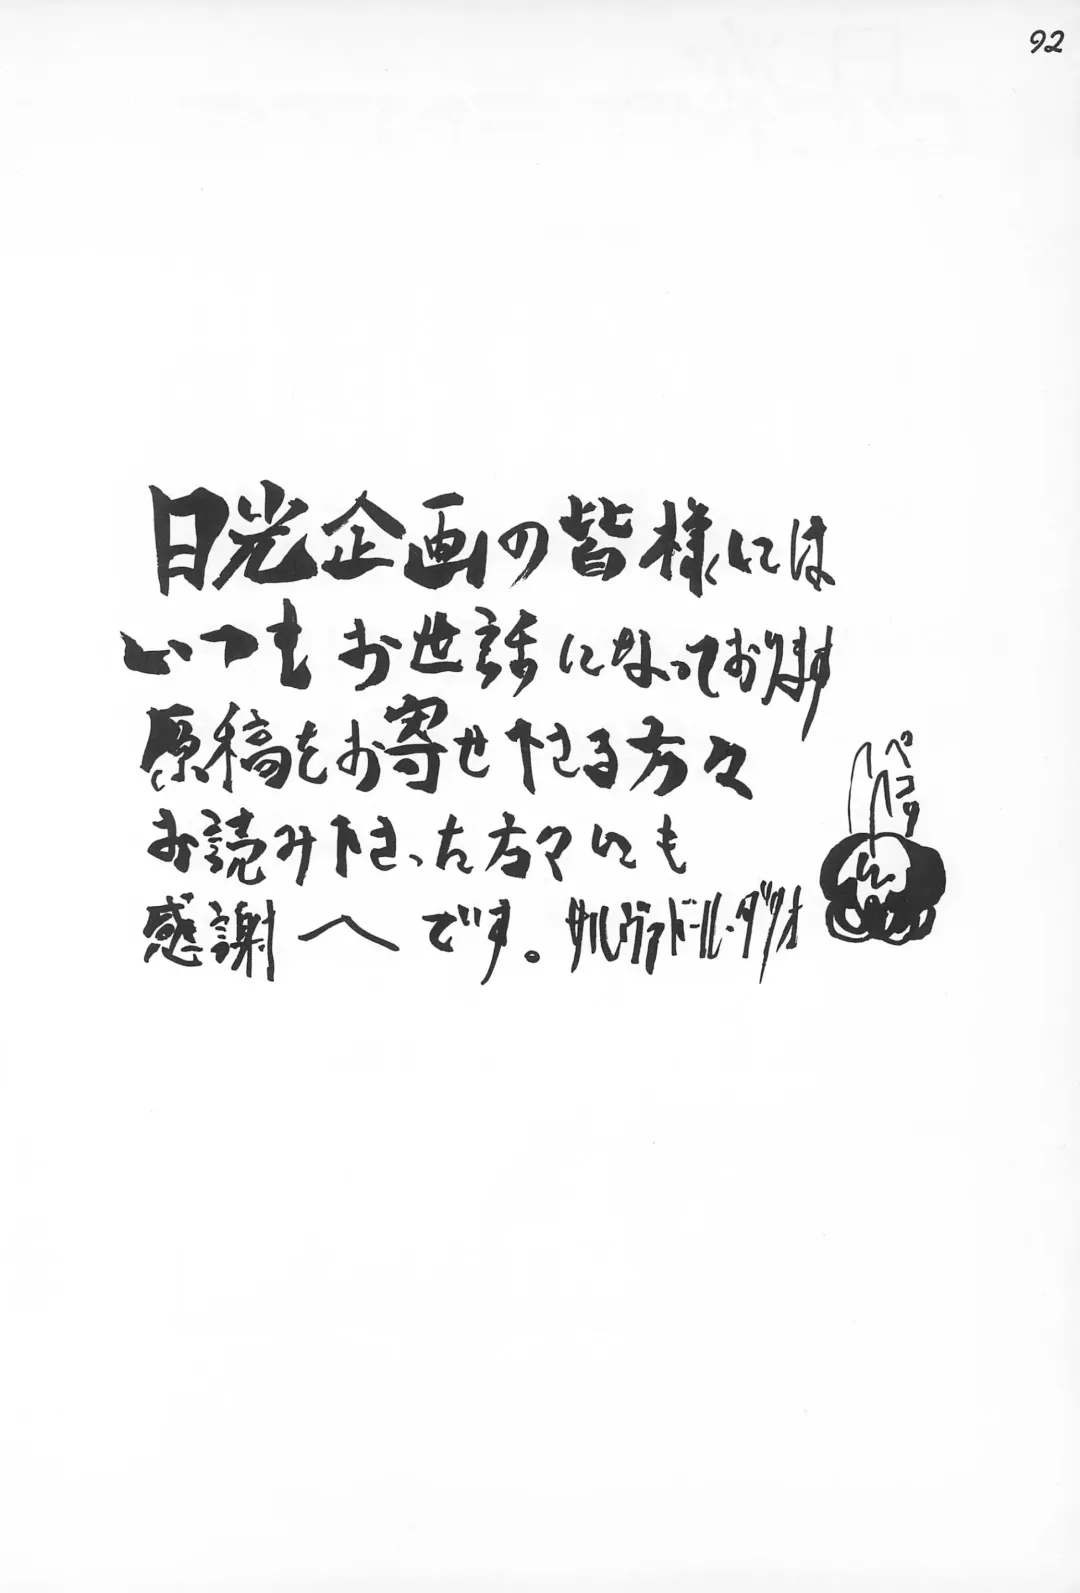 92
日光企画の皆様には
いつもお世話になっております
原稿をお寄せ下さる方々
お読み下さった方々にも
感謝へです。サルヴァドール・ダリオ
ペコリ